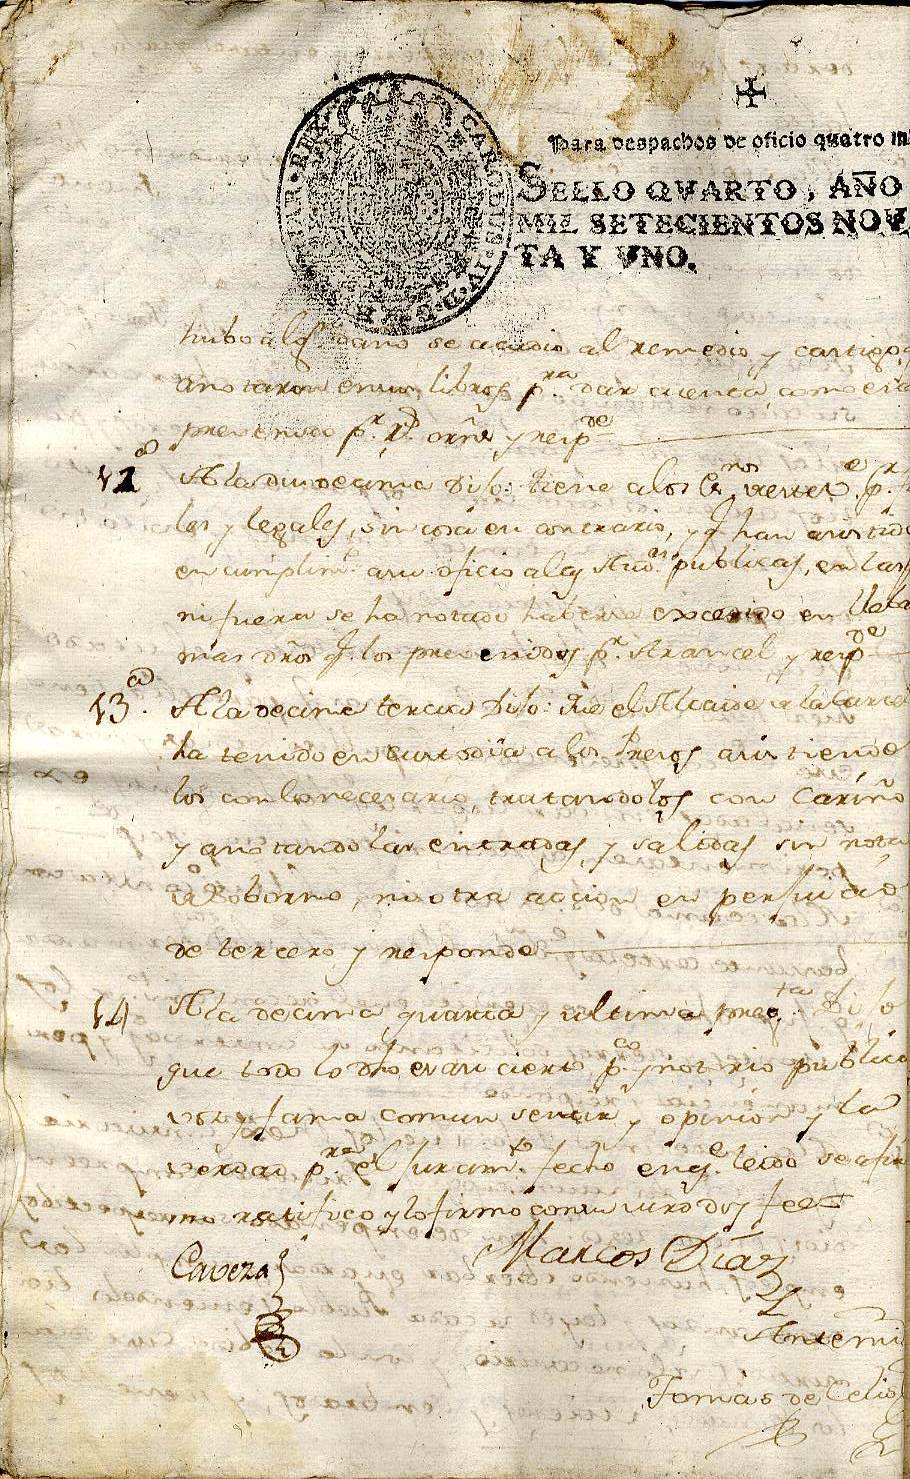 ✠
Para despachos de oficio quatro m
SELLO QVARTO, AÑO
MIL SETECIENTOS NOV
TA Y VNO.
CAROLUS IV D G
HISPANIAR REX
hubo algn daño se acudio al remedio y castigo,
anotaron en sus libros pra. dar cuenta, como esta
prevenido pr. Rl. orñ y respde
12a
A la duodecima Dijo: tiene a los Esnos por
les y legales, sin cosa en contrario, y q han asistido
en cumplimto. a su oficio a las Aud.as publicas, en las
ni fuera se ha notado haberse excedido en lleba
mas dros q. los prevenidos pr. Arancel y respde
13a.
A la decima tercia Dijo: Que el Alcaide a la Carce
ha tenido en custodia a los Presos asistiende
los con lo necesario, tratandolos con Cariño
y anotando las entradas, y salidas sin nota
de soborno, ni otra accion en perjuicio
de tercero y responde
14
A la decima quarta y ultima pregta. Dijo
que todo lo dho es asi cierto pco. y notorio publica
voz y fama comun sentir y opinion y la
verdad pra. el juramto. fecho en q.e leido se afir
mo ratifico y lo firmo con su mrd doy fee
Caveza
Marcos Díaz
Antemi
Tomás de Celis